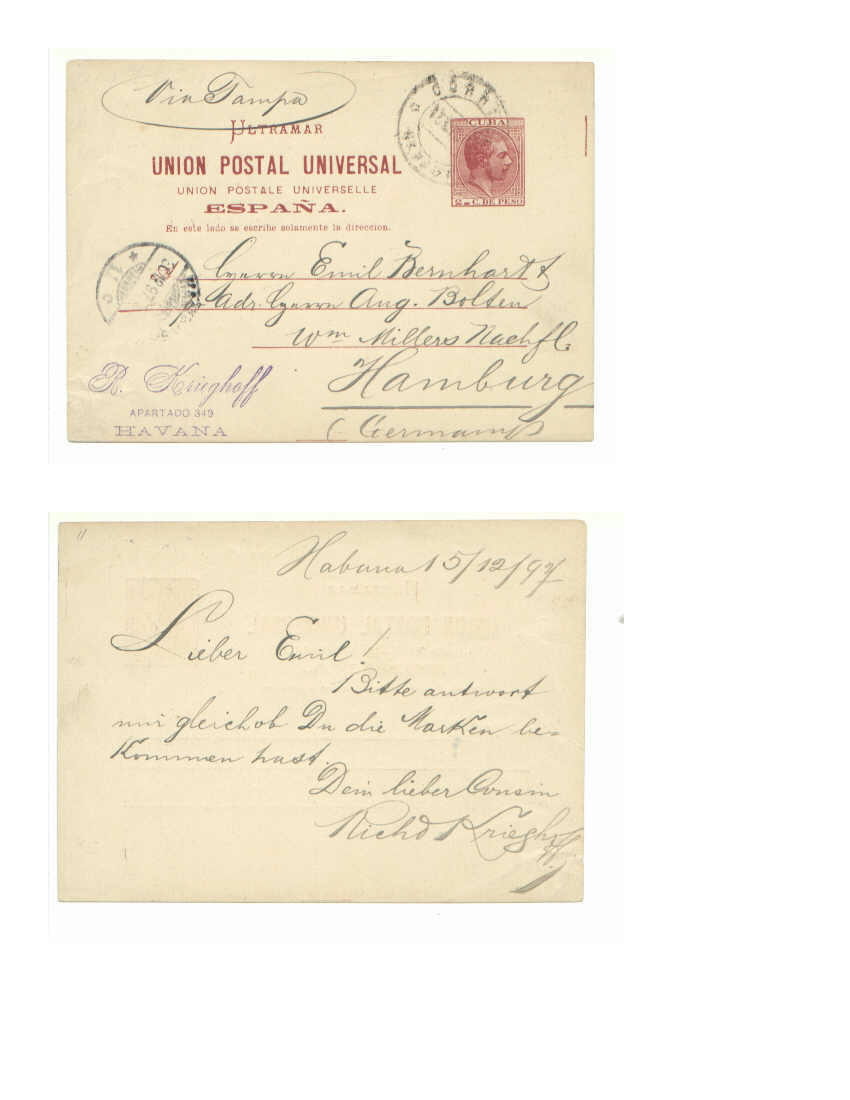 Via Tampa
CORR
CUBA
ULTRAMAR
UNION POSTAL UNIVERSAL
UNION POSTALE UNIVERSELLE
ESPAÑA.
2 C. DE PESO
En este lado se escribe solamente la direccion.
Herrn Emil Bernhardt
pr Adr. Herrn Aug. Bolten
Wm Millers Nachfl.
Hamburg
(Germany)
R. Krieghoff
APARTADO 349
HAVANA
Habana 15/12/97
Lieber Emil!
Bitte antwort
mir gleich ob Du die Marken be=
kommen hast.
Dein lieber Cousin
Richd Krieghoff